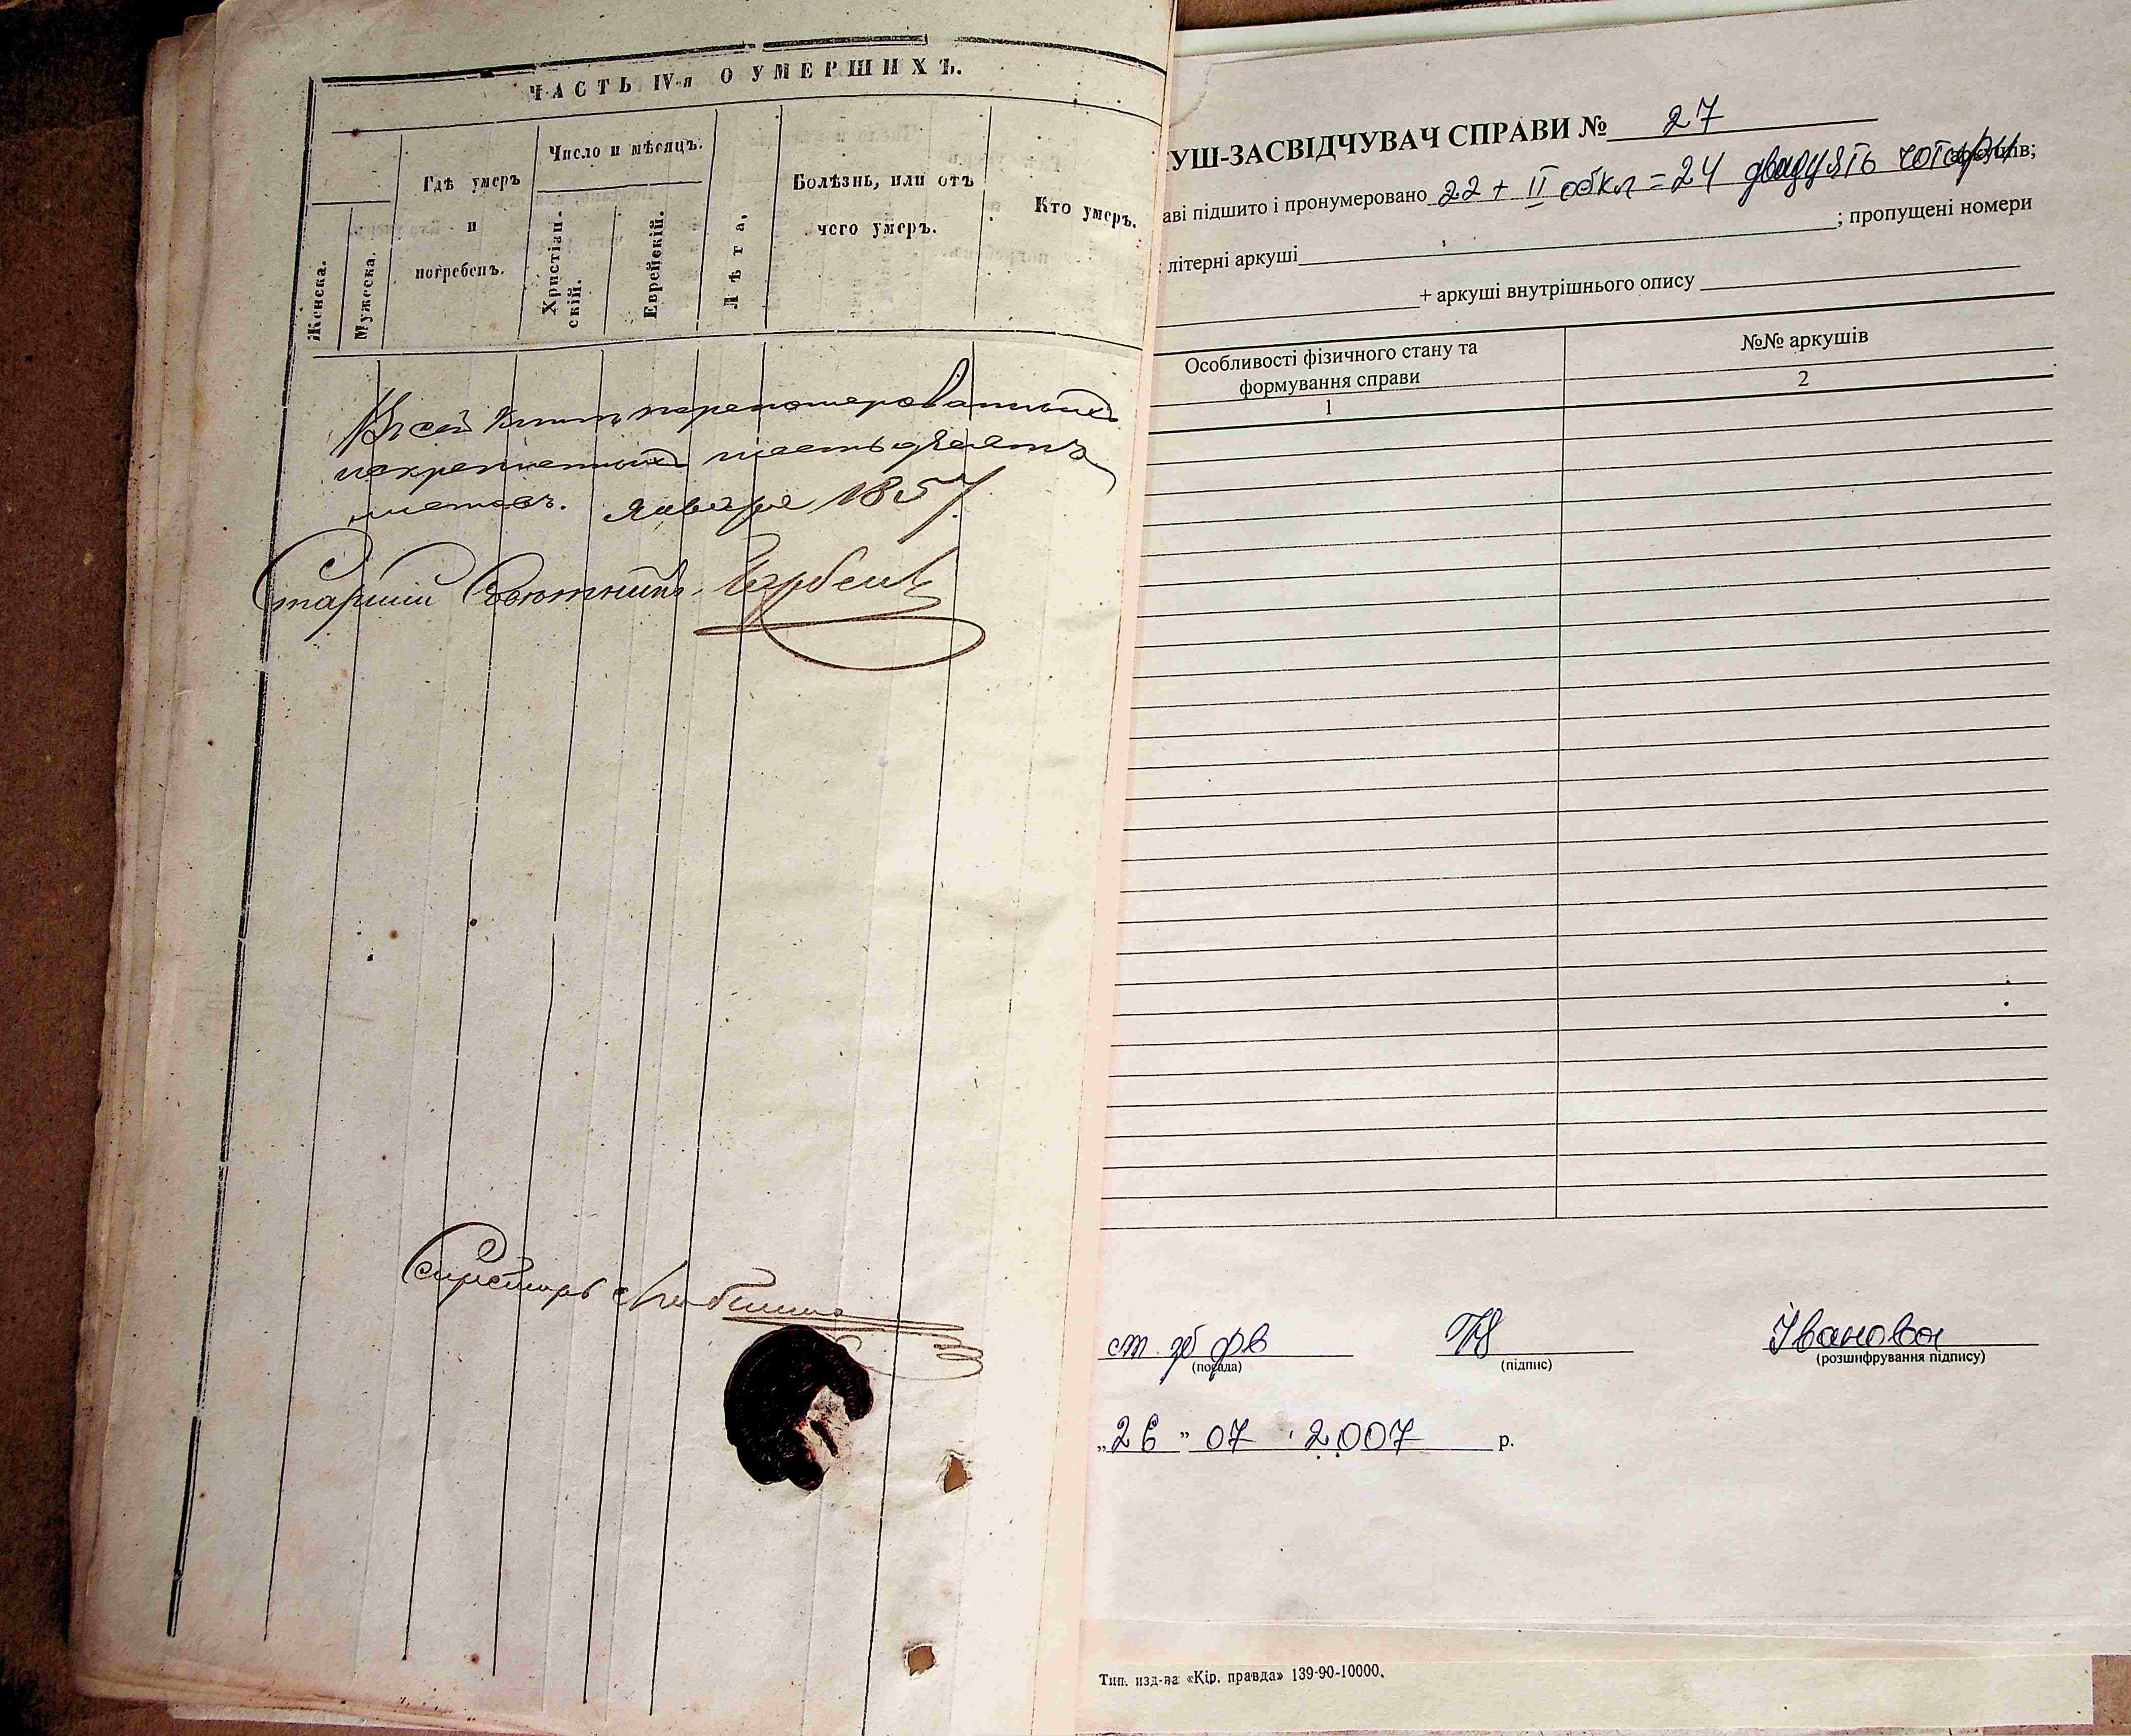 ЧАСТЬ IV-я О УМЕРШИХЪ.
Женска.
Мужеска.
Гдѣ умеръ
и
погребенъ.
Число и мѣсяцъ.
Христіан-
скій.
Еврейскій.
Лѣта.
Болѣзнь, или отъ
чего умеръ.
Кто умеръ.
Въ сей Книгѣ перенумерованныхъ
искрепленныхъ листовъ. Января 1857.
Старшій Совѣтникъ
Секретарь
УШ-ЗАСВІДЧУВАЧ СПРАВИ № 27
аві підшито і пронумеровано 22 + II обкл = 24 двадцять чотири аркушів;
літерні аркуші ; пропущені номери
+ аркуші внутрішнього опису
Особливості фізичного стану та
формування справи
№№ аркушів
1
2
ст зб фв
Іванова
(посада)
(підпис)
(розшифрування підпису)
„26” 07 . 2007 р.
Тип. изд-ва «Кір. правда» 139-90-10000.